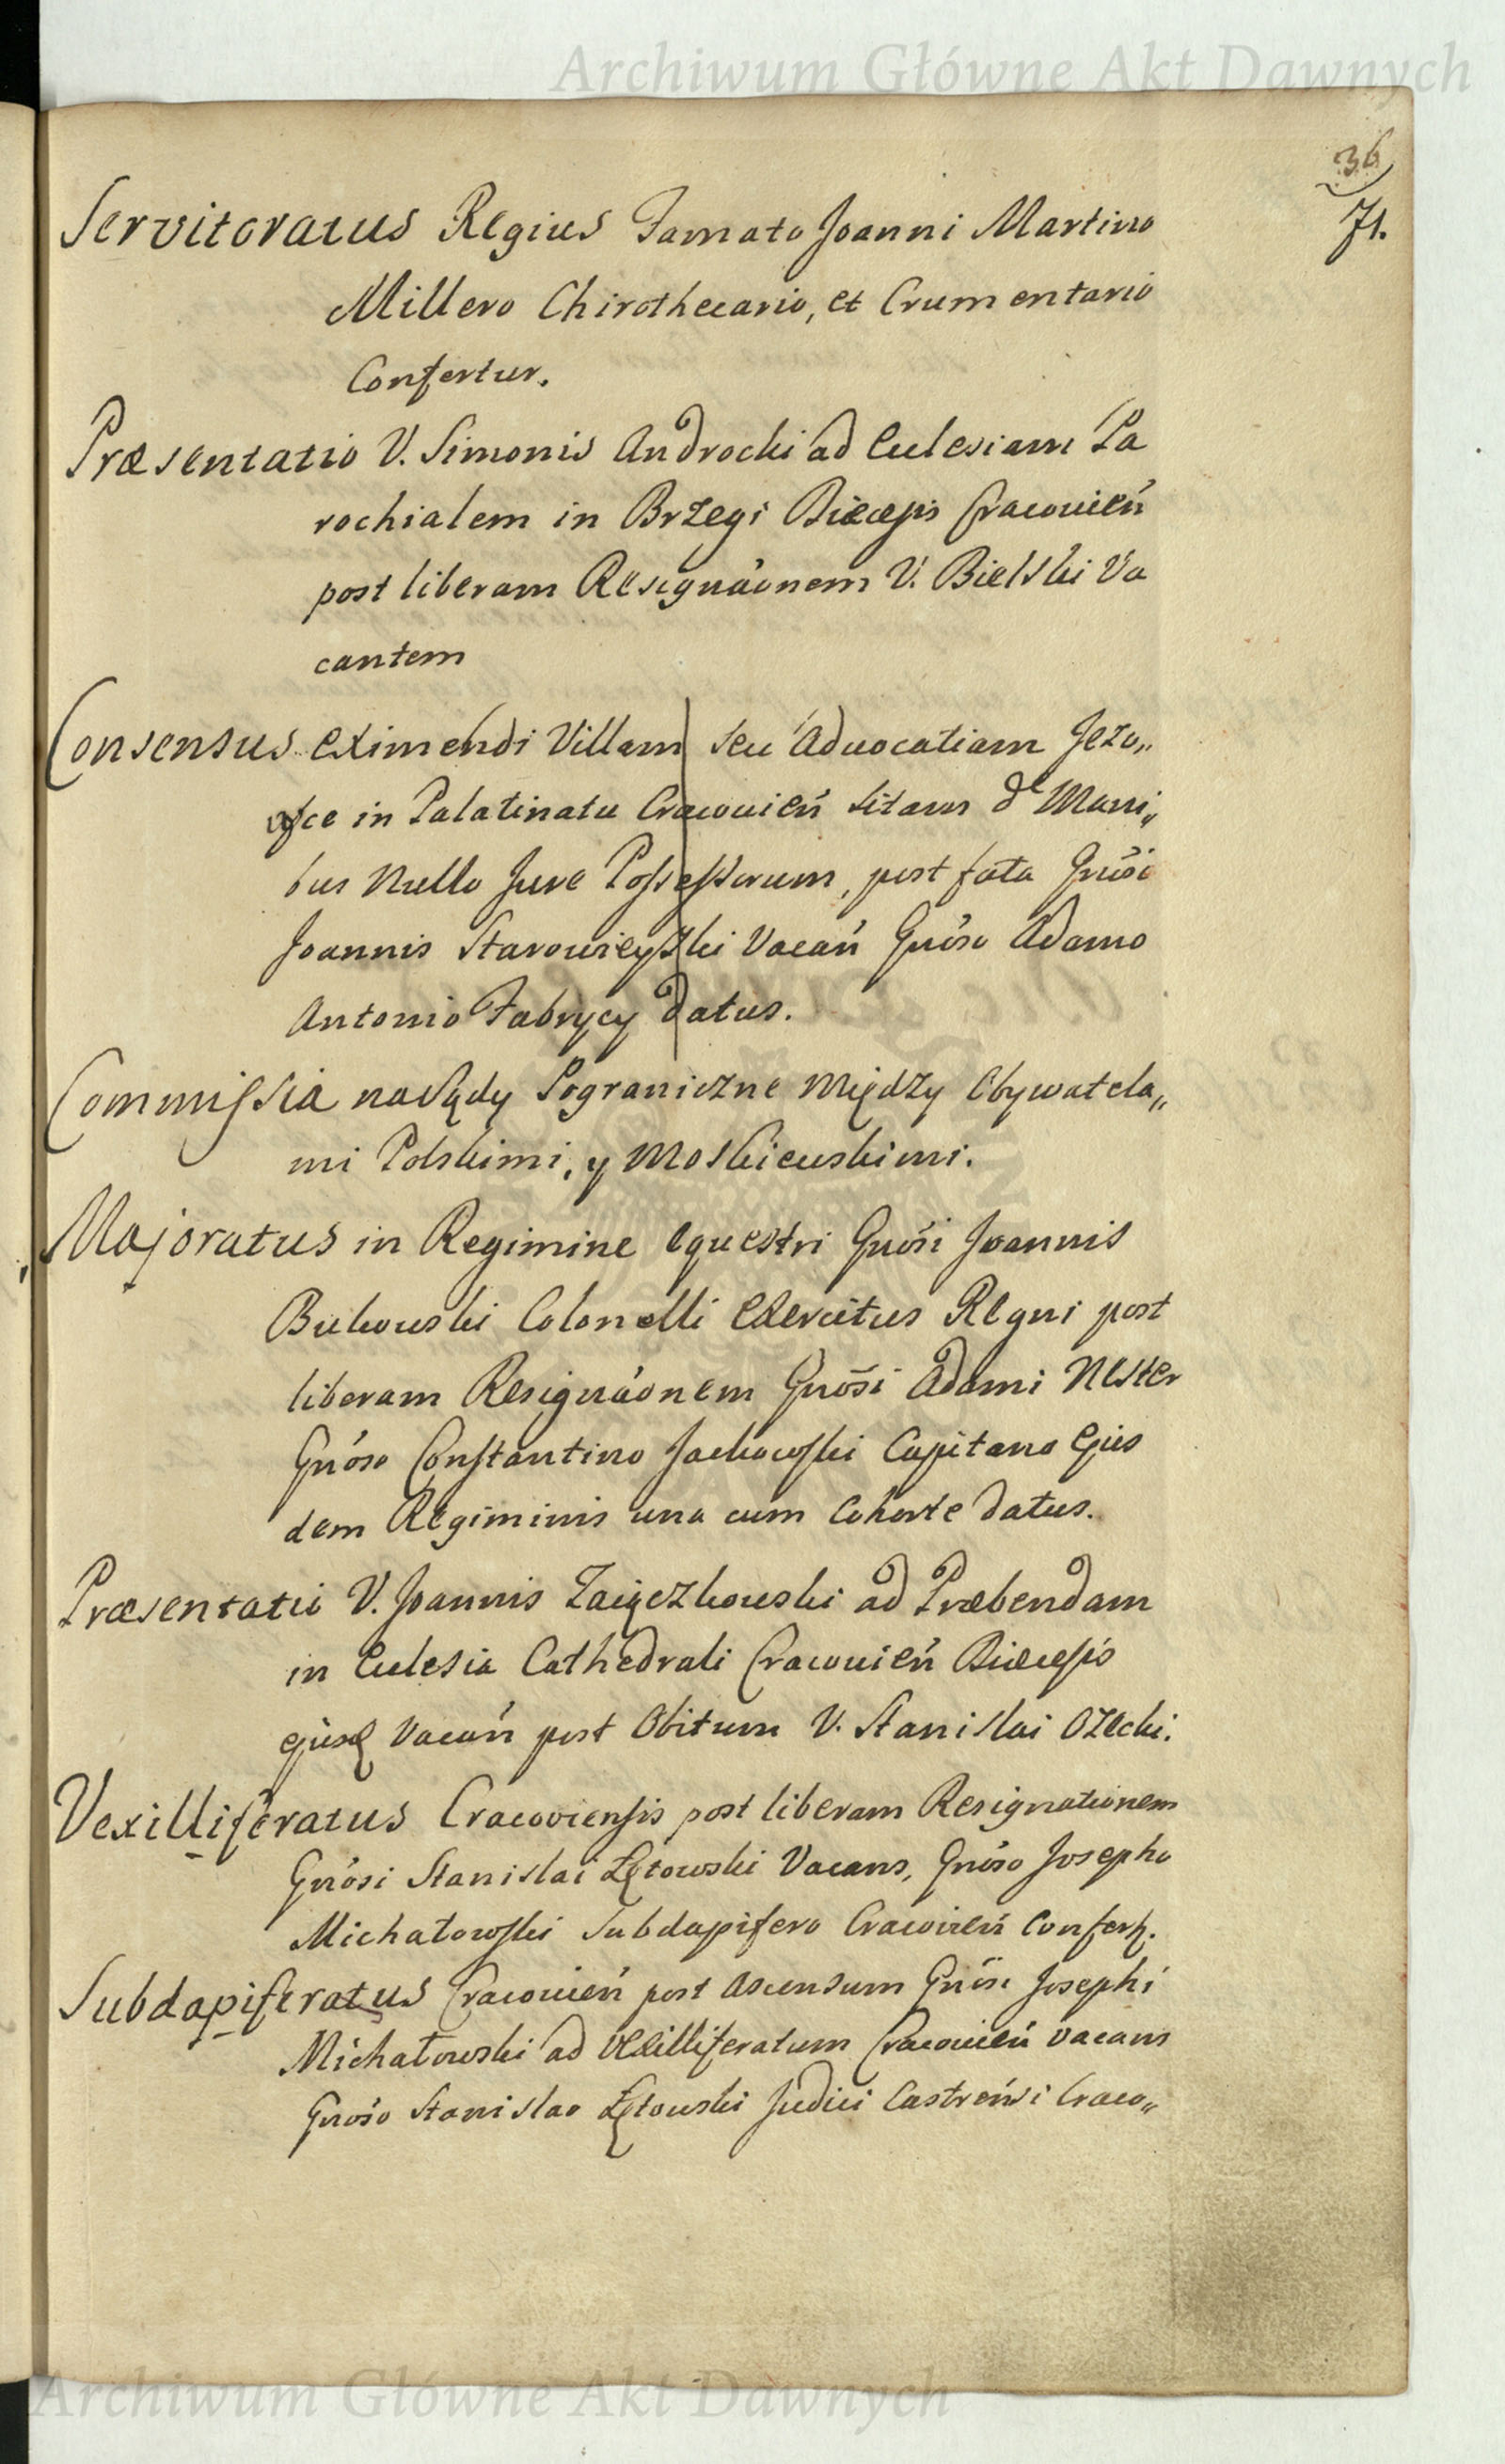 Archiwum Główne Akt Dawnych
36
71.
Servitoratus Regius Famato Joanni Martino
Millero Chirothecario, et Crumentario
Confertur.
Præsentatio V. Simonis Androcki ad Eccelesiam Pa
rochialem in Brzegi Diæcesis Cracovień
post liberam Resignaónem V. Bielski Va
cantem
Consensus eximendi Villam seu Advocatiam Jezo„
in Palatinatu Cracovień sitam de Mani„
bus Nullo Jure Possessorum, post fata Gnósi
Joannis Starowieyski Vacań Gnóso Adamo
Antonio Fabrycy datus.
Commissia na Sądy Pograniczne między Obywatela„
mi Polskimi, y Moskiewskimi.
Majoratus in Regimine equestri Gnósi Joannis
Bukowski Colonelli Exercitus Regni post
liberam Resignaónem Gnósi Adami Nester
Gnóso Constantino Jackowski Capitano Ejus
dem Regiminis una cum Cohorte datus.
Præsentatio V. Joannis Zaięczkowski ad Præbendam
in Ecclesia Cathedrali Cracovień Diæcesis
ejusq Vacań post Obitum V. Stanislai Ożecki.
Vexilliferatus Cracoviensis post liberam Resignationem
Gnósi Stanislai Łętowski Vacans, Gnóso Josepho
Michałowski Subdapifero Cracovień Confert.
Subdapiferatus Cracovień post Ascensum Gnósi Josephi
Michałowski ad Vexilliferatum Cracovień vacans
Gnóso Stanislao Łętowski Judici Castreńsi Craco„
Archiwum Główne Akt Dawnych